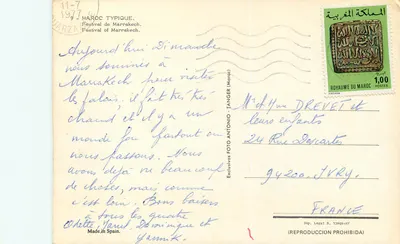 11-7
1977
MAROC TYPIQUE.
Festival de Marrakech.
Festival of Marrakech.
Aujourd'hui Dimanche
nous sommes à
Marrakech pour visiter
les palais, il fait très très
chaud et il y a un
monde fou partout où
nous passons. Nous
avons déjà vu beaucoup
de choses, mais comme
c'est loin. Bons baisers
à tous les quatre
Odette, Dominique et
Yannick.
Made in Spain.
Exclusives FOTO ANTONIO - TANGER (Maroc)
المملكة المغربية
1,00
ROYAUME DU MAROC
Mr et Mme DREVET et
leurs enfants
24 Rue Descartes
94200. IVRY.
FRANCE
(REPRODUCTION PROHIBIDA)